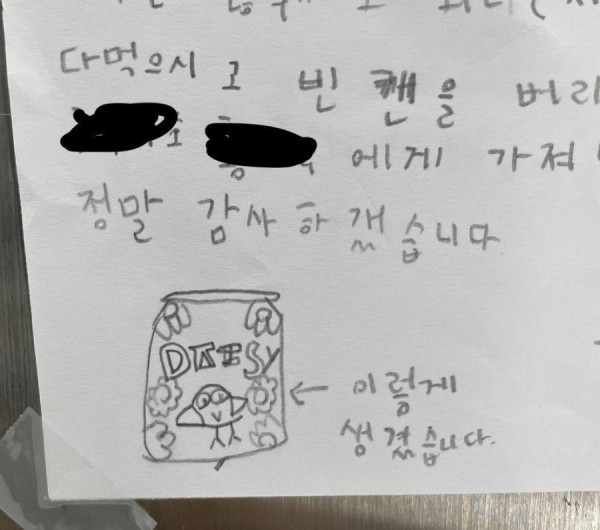 다먹으시고 빈 캔을 버리
에게 가져
정말 감사하갰습니다
이렇게
생겼습니다.